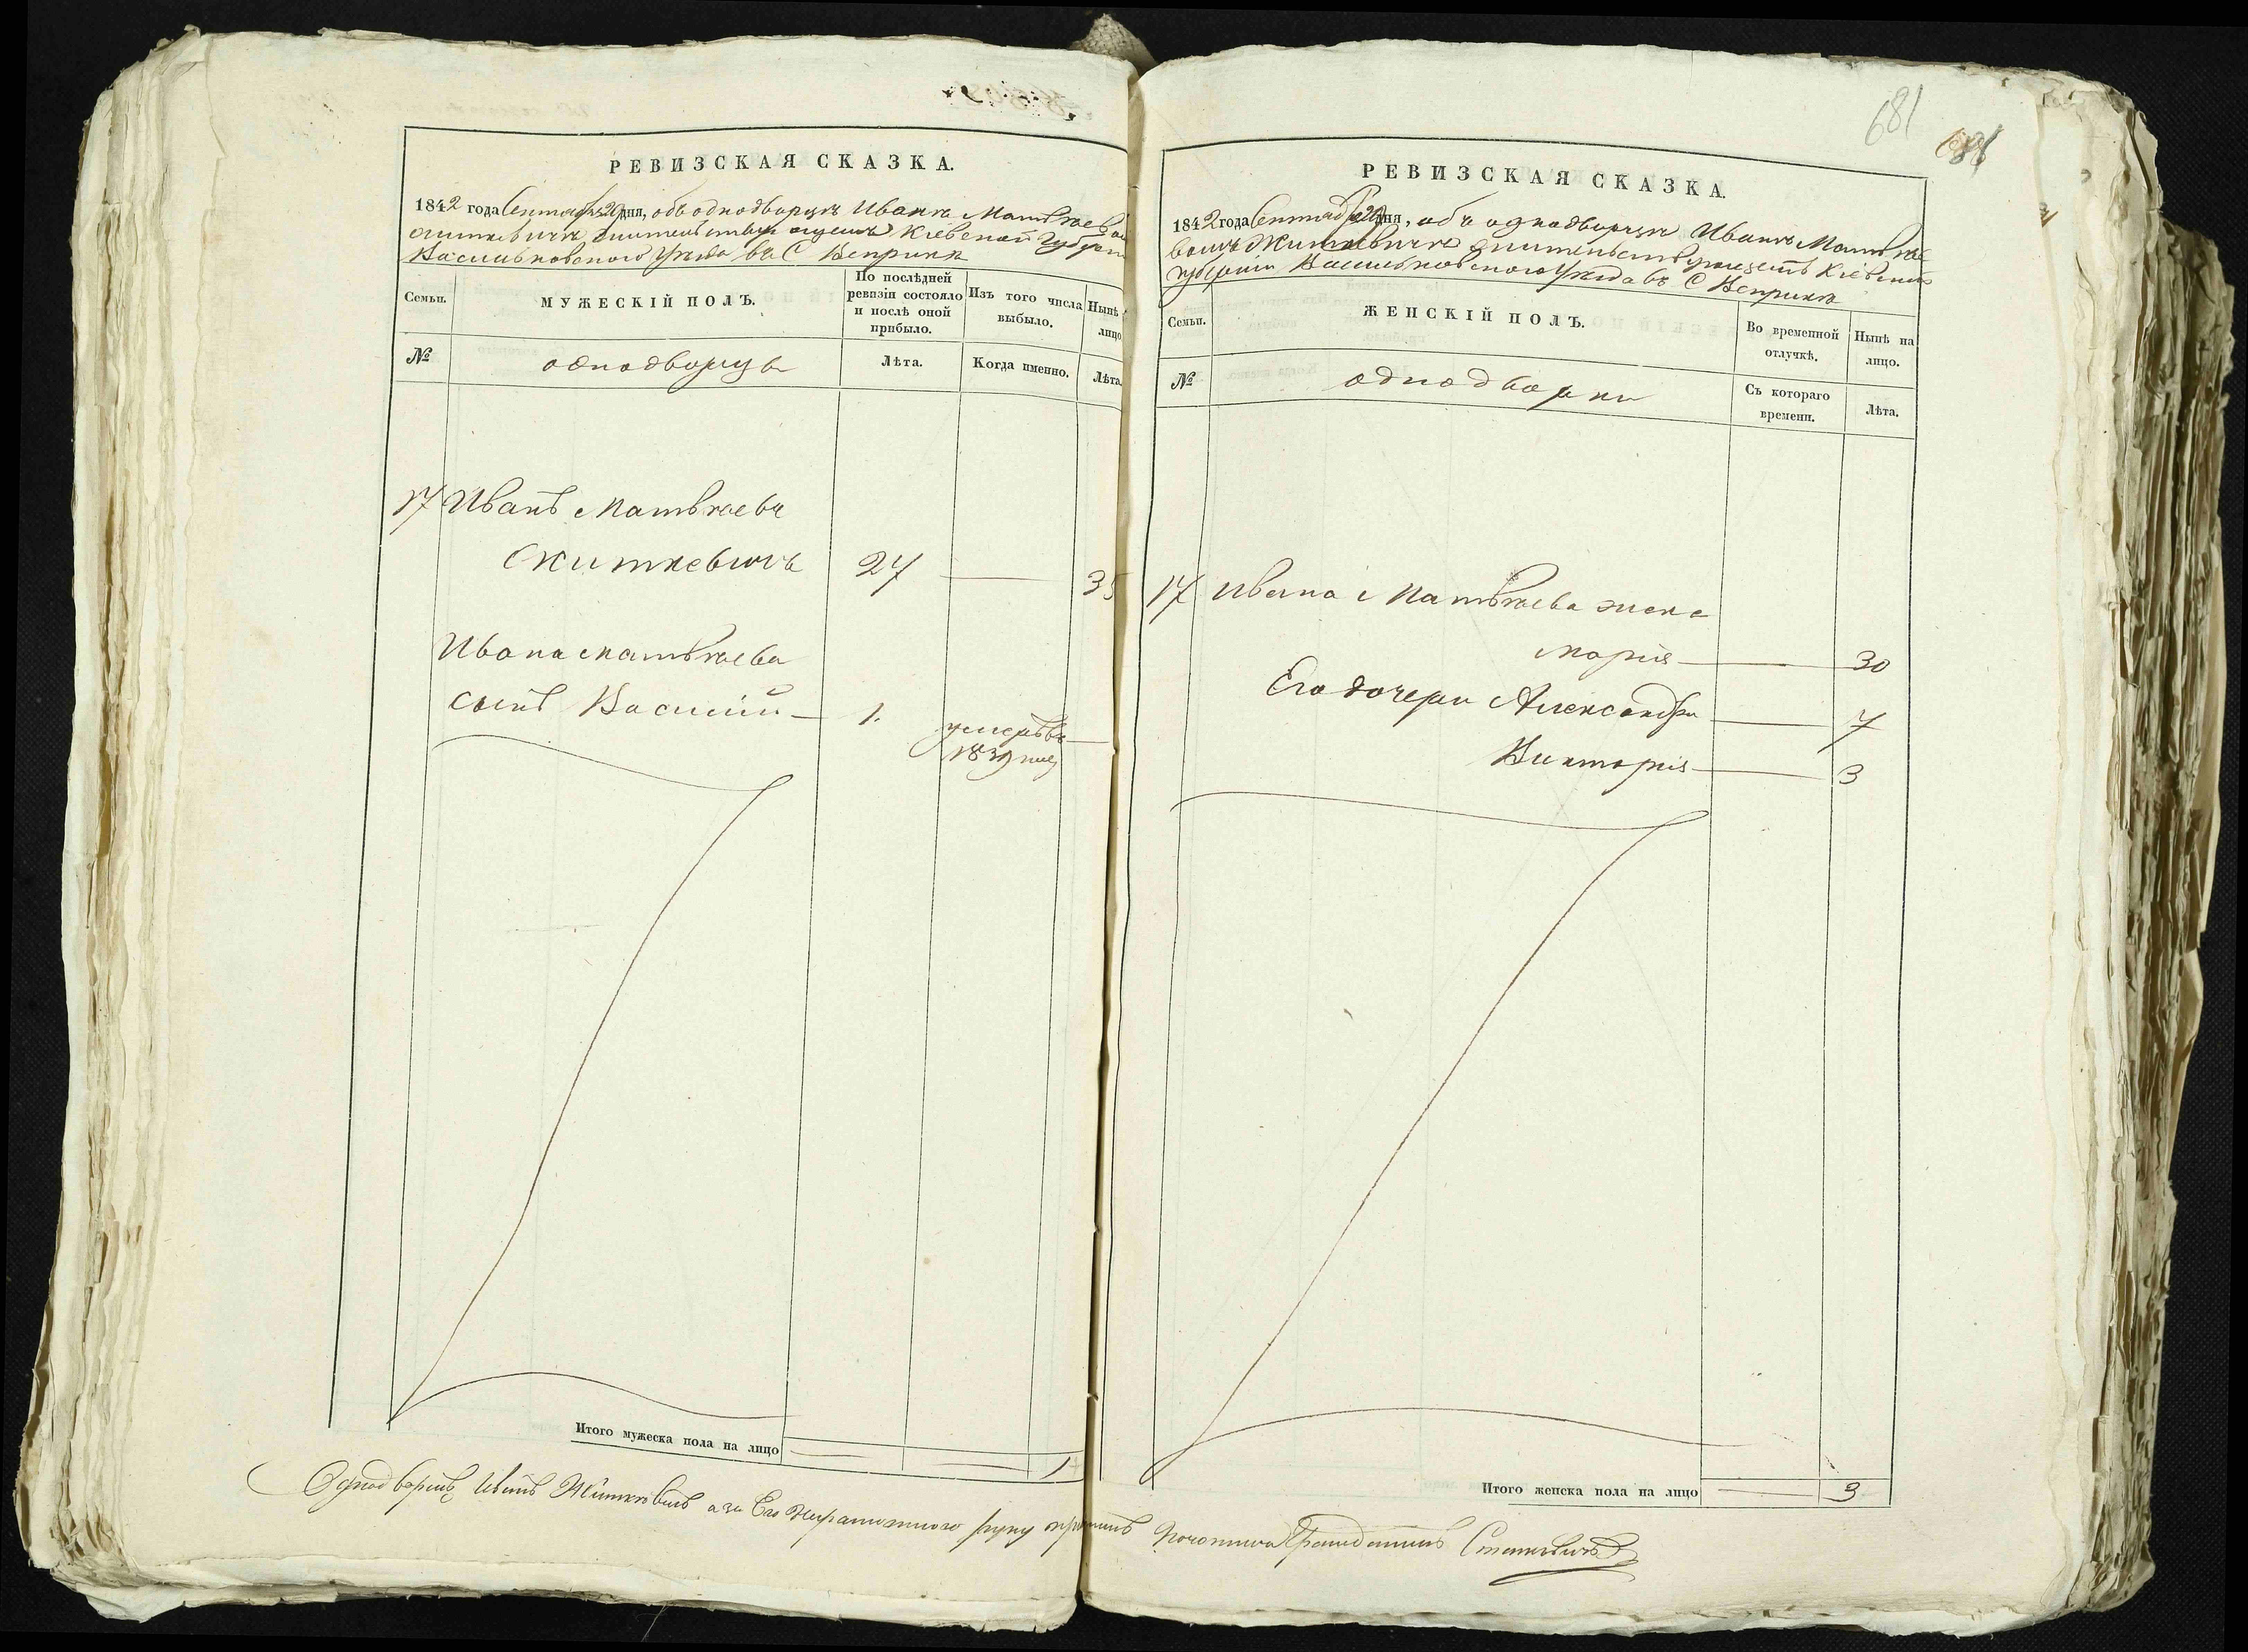 РЕВИЗСКАЯ СКАЗКА.
1842 года Сентября 20 дня, объ однодворцѣ Иванѣ Матвѣевѣ
Житкевичѣ жительствующемъ Кіевской Губерніи
Васильковского уѣзда въ С Веприкѣ
Семьи.
МУЖЕСКІЙ ПОЛЪ.
По послѣдней ревизіи состояло и послѣ оной прибыло.
Изъ того числа выбыло.
Нынѣ лицо
№
однодворцы
Лѣта.
Когда именно.
Лѣта
17 Иванъ Матвѣевъ
Житкевичъ 27 — 35
Ивана Матвѣева
сынъ Василий — 1. умеръ въ —
1839 году
Итого мужеска пола на лицо 1
681
681
РЕВИЗСКАЯ СКАЗКА.
1842 года Сентября 20 дня, объ однодворцѣ Иванѣ Матвѣе
вомъ Житкевичѣ жительствующемъ Кіевской
губерніи Васильковского уѣзда въ С Веприкѣ
Семьи.
ЖЕНСКІЙ ПОЛЪ.
Во временной отлучкѣ.
Нынѣ на лицо.
№
однодворки
Съ котораго времени.
Лѣта.
17 Ивана Матвѣева жена
Марія — 30
Его дочери Александра — 7
Викторія — 3
Итого женска пола на лицо 3
Однодворецъ Иванъ Житкевичъ а за Его неграмотного руку приложилъ Станкевичъ